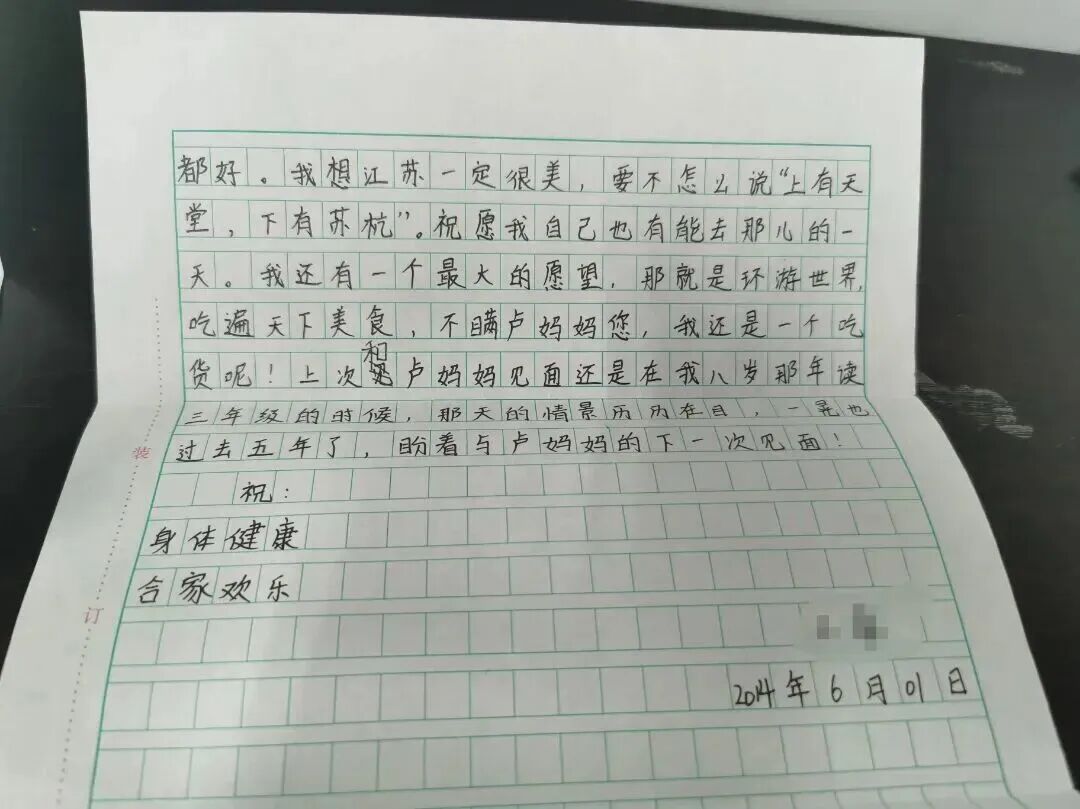 都好。我想江苏一定很美，要不怎么说“上有天
堂，下有苏杭”。祝愿我自己也有能去那儿的一
天。我还有一个最大的愿望，那就是环游世界，
吃遍天下美食，不瞒卢妈妈您，我还是一个吃
货呢！上次和卢妈妈见面还是在我八岁那年读
三年级的时候，那天的情景历历在目，一晃也
过去五年了，盼着与卢妈妈的下一次见面！
祝：
身体健康
合家欢乐
2014年6月01日
装
订